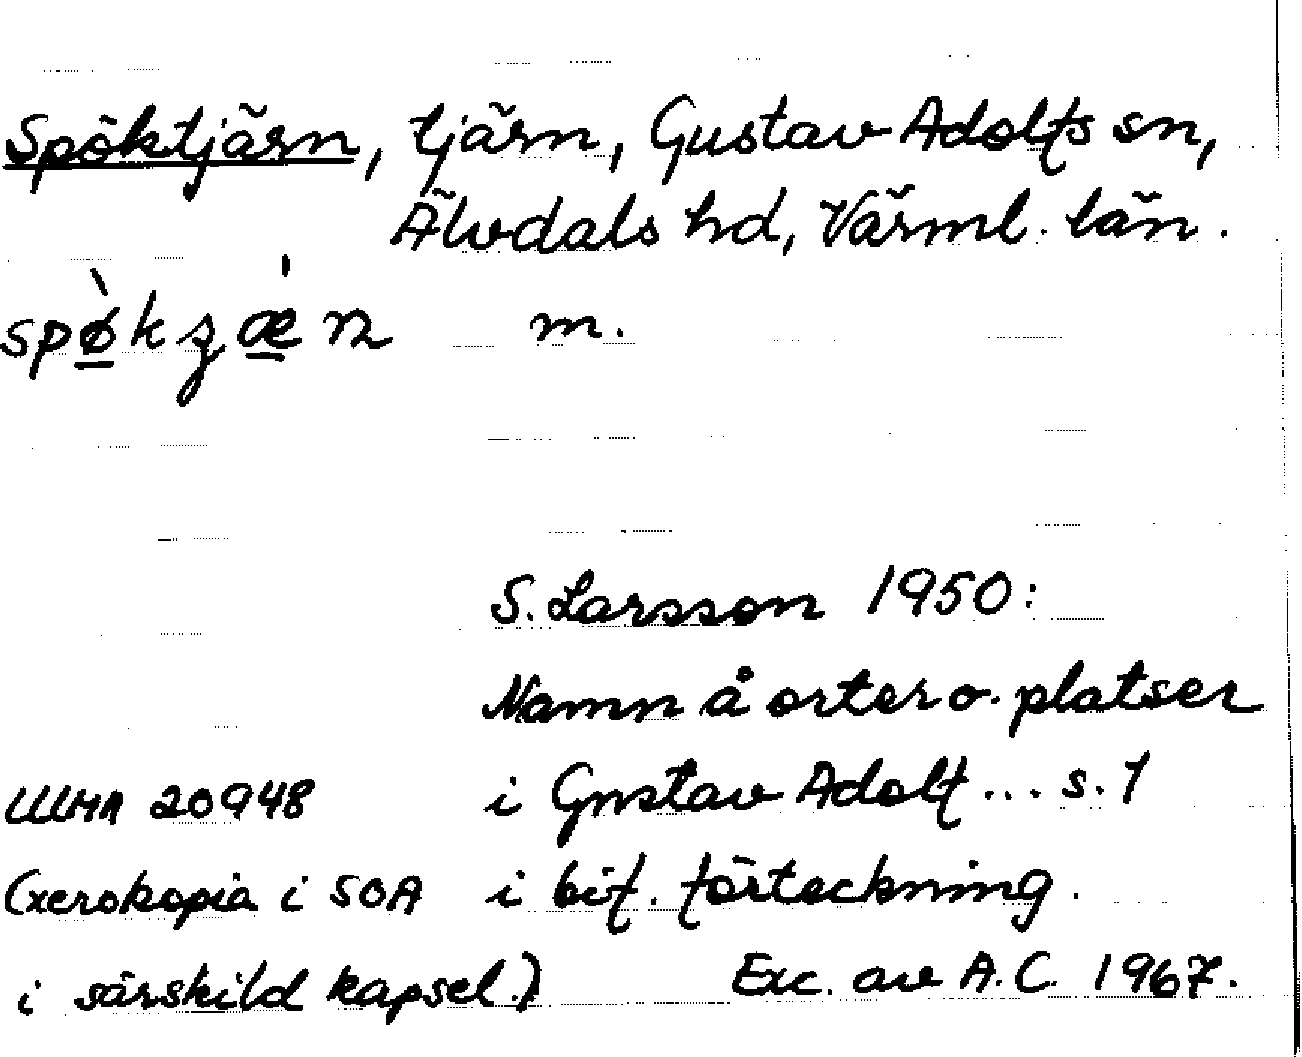 Spöktjärn, tjärn, Gustav Adolfs sn,
Älvdals hd, Värml. län.
spø̀kʒǽn m.
S. Larsson 1950:
Namn å orter o. platser
ULMA 20948 i Gustav Adolf ... s. 1
(xerokopia i SOA i bif. förteckning.
i särskild kapsel.) Exc. av A.C. 1967.